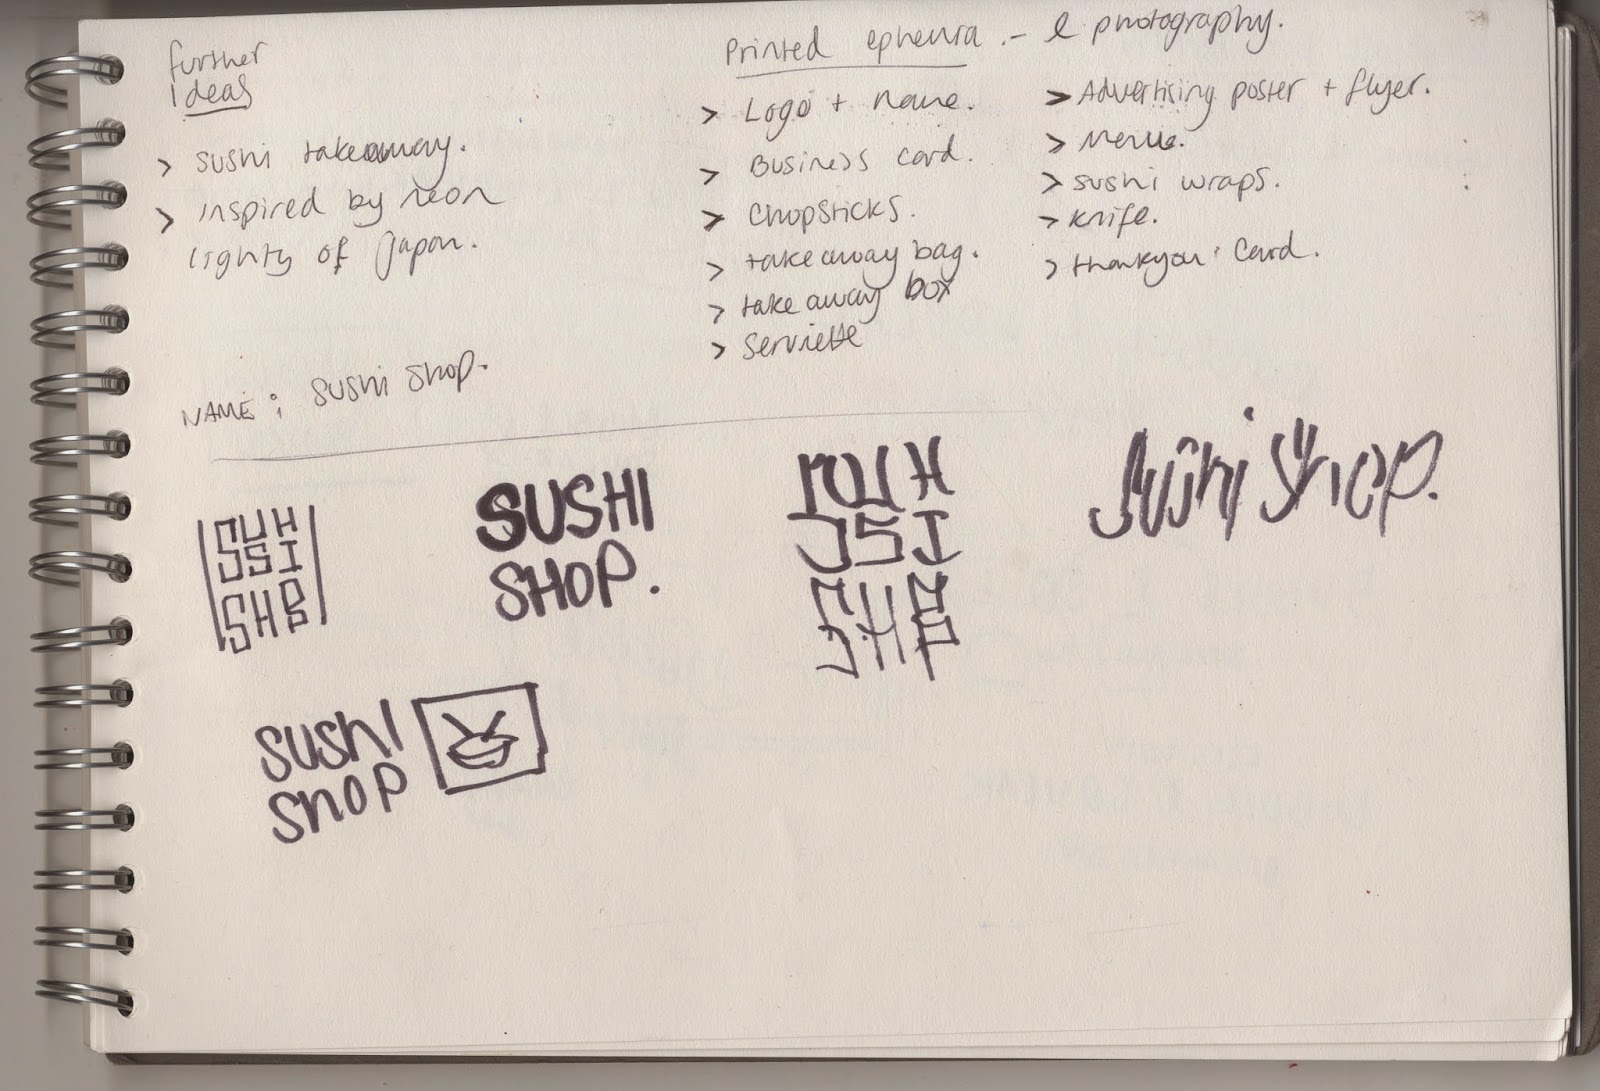 further
Ideas
> sushi takeaway.
> inspired by neon
lights of Japan.
Printed ephemra .- & photography.
> Logo + name.
> Business card.
> Chopsticks.
> takeaway bag.
> take away box
> Serviette
> Advertising poster + flyer.
> Menue.
> sushi wraps.
> knife.
> thankyou card.
NAME: Sushi Shop.
SUH
SSI
SHP
SUSHI
SHOP.
SUH
SSI
SHP
Sushi Shop.
Sushi
Shop